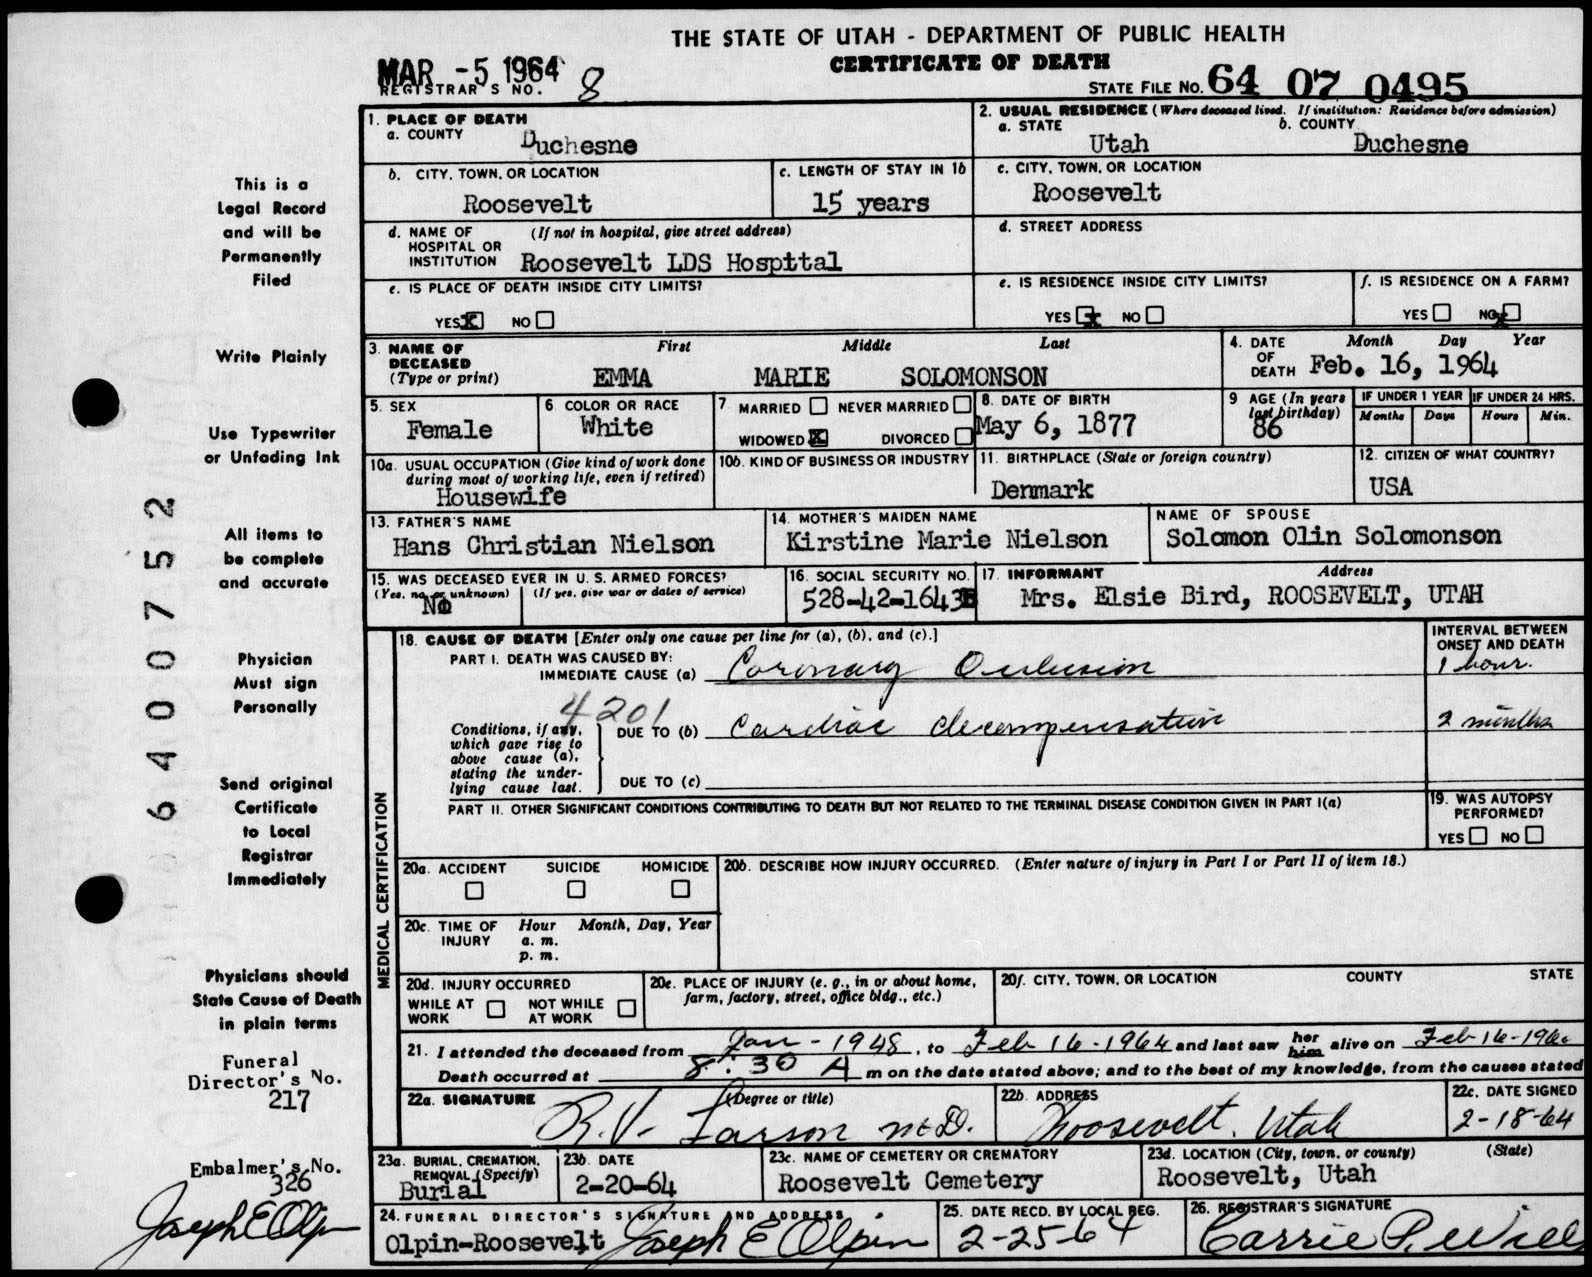 THE STATE OF UTAH - DEPARTMENT OF PUBLIC HEALTH
CERTIFICATE OF DEATH
MAR -5 1964
REGISTRAR'S NO. 8
STATE FILE NO. 64 07 0495
This is a
Legal Record
and will be
Permanently
Filed
Write Plainly
Use Typewriter
or Unfading Ink
All items to
be complete
and accurate
Physician
Must sign
Personally
Send original
Certificate
to Local
Registrar
Immediately
Physicians should
State Cause of Death
in plain terms
Funeral
Director's No.
217
Embalmer's No.
326
Joseph E Olpin
6400752
1. PLACE OF DEATH
a. COUNTY
Duchesne
2. USUAL RESIDENCE (Where deceased lived. If institution: Residence before admission)
a. STATE
Utah
b. COUNTY
Duchesne
b. CITY, TOWN, OR LOCATION
Roosevelt
c. LENGTH OF STAY IN 1b
15 years
c. CITY, TOWN, OR LOCATION
Roosevelt
d. NAME OF HOSPITAL OR INSTITUTION (If not in hospital, give street address)
Roosevelt LDS Hospttal
d. STREET ADDRESS
e. IS PLACE OF DEATH INSIDE CITY LIMITS?
YES X NO
e. IS RESIDENCE INSIDE CITY LIMITS?
YES X NO
f. IS RESIDENCE ON A FARM?
YES NO X
3. NAME OF DECEASED (Type or print)
First Middle Last
EMMA MARIE SOLOMONSON
4. DATE OF DEATH
Month Day Year
Feb. 16, 1964
5. SEX
Female
6. COLOR OR RACE
White
7. MARRIED NEVER MARRIED
WIDOWED X DIVORCED
8. DATE OF BIRTH
May 6, 1877
9 AGE (In years last birthday)
86
IF UNDER 1 YEAR
Months Days
IF UNDER 24 HRS.
Hours Min.
10a. USUAL OCCUPATION (Give kind of work done during most of working life, even if retired)
Housewife
10b. KIND OF BUSINESS OR INDUSTRY
11. BIRTHPLACE (State or foreign country)
Denmark
12. CITIZEN OF WHAT COUNTRY?
USA
13. FATHER'S NAME
Hans Christian Nielson
14. MOTHER'S MAIDEN NAME
Kirstine Marie Nielson
NAME OF SPOUSE
Solomon Olin Solomonson
15. WAS DECEASED EVER IN U. S. ARMED FORCES?
(Yes, no, or unknown) (If yes, give war or dates of service)
No
16. SOCIAL SECURITY NO.
528-42-1643
17. INFORMANT Address
Mrs. Elsie Bird, ROOSEVELT, UTAH
MEDICAL CERTIFICATION
18. CAUSE OF DEATH [Enter only one cause per line for (a), (b), and (c).]
INTERVAL BETWEEN ONSET AND DEATH
PART I. DEATH WAS CAUSED BY:
IMMEDIATE CAUSE (a) Coronary Occlusion
1 hour.
4201
Conditions, if any, which gave rise to above cause (a), stating the underlying cause last.
DUE TO (b) Cardiac decompensation
2 months
DUE TO (c)
PART II. OTHER SIGNIFICANT CONDITIONS CONTRIBUTING TO DEATH BUT NOT RELATED TO THE TERMINAL DISEASE CONDITION GIVEN IN PART I(a)
19. WAS AUTOPSY PERFORMED?
YES NO
20a. ACCIDENT SUICIDE HOMICIDE
20b. DESCRIBE HOW INJURY OCCURRED. (Enter nature of injury in Part I or Part II of item 18.)
20c. TIME OF INJURY
Hour Month, Day, Year
a. m.
p. m.
20d. INJURY OCCURRED
WHILE AT WORK NOT WHILE AT WORK
20e. PLACE OF INJURY (e. g., in or about home, farm, factory, street, office bldg., etc.)
20f. CITY, TOWN, OR LOCATION COUNTY STATE
21. I attended the deceased from Jan - 1948, to Feb 16-1964 and last saw her him alive on Feb-16-196
Death occurred at 8:30 A m on the date stated above; and to the best of my knowledge, from the causes stated
22a. SIGNATURE (Degree or title)
R.V. Larson M.D.
22b. ADDRESS
Roosevelt, Utah
22c. DATE SIGNED
2-18-64
23a. BURIAL, CREMATION, REMOVAL (Specify)
Burial
23b. DATE
2-20-64
23c. NAME OF CEMETERY OR CREMATORY
Roosevelt Cemetery
23d. LOCATION (City, town, or county) (State)
Roosevelt, Utah
24. FUNERAL DIRECTOR'S SIGNATURE AND ADDRESS
Olpin-Roosevelt Joseph E Olpin
25. DATE RECD. BY LOCAL REG.
2-25-64
26. REGISTRAR'S SIGNATURE
Carrie P.